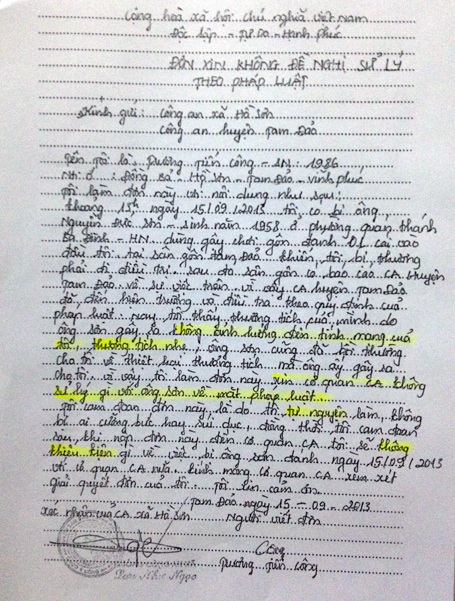 Cộng hoà xã hội chủ nghĩa Việt Nam
Độc lập - Tự Do - Hạnh Phúc
ĐƠN XIN KHÔNG ĐỀ NGHỊ SỬ LÝ
THEO PHÁP LUẬT
Kính gửi: Công an xã Hồ Sơn
Công an huyện Tam Đảo
Tên Tôi là: Dương Tiến Công - SN: 1986
Nơi ở: Đồng Bả - Hồ Sơn - Tam Đảo - Vĩnh phúc
Tôi làm đơn này với nội dung như sau:
Khoảng 15h ngày 15/09/2013 tôi có bị ông
Nguyễn Đức Sơn - Sinh năm 1958 ở phường quan thánh
Ba Đình - HN dùng gậy chơi gôn đánh 01 cái vào
đầu tôi tại sân gôn Tam Đảo khiến tôi bị thương
phải đi điều trị sau đó sân gôn có báo cáo CA huyện
Tam Đảo về sự việc trên vì vậy CA huyện Tam Đảo
đã đến hiện trường và điều tra theo quy định của
pháp luật nay tôi thấy thương tích của mình do
ông sơn gây ra không ảnh hưởng đến tính mạng của
tôi, thương tích nhẹ, ông sơn cũng đã bồi thường
cho tôi về thiệt hại thương tích mà ông ấy gây ra
cho tôi vì vậy tôi làm đơn này xin cơ quan CA không
sử lý gì với ông sơn về mặt pháp luật
Tôi cam đoan đơn này là do tôi tự nguyện làm, không
bị ai cưỡng bức hay sui dục, đồng thời tôi cam đoan
sau khi nộp đơn này đến cơ quan CA tôi sẽ không
khiếu kiện gì về việc bị ông sơn đánh ngày 15/09/2013
với cơ quan CA nữa, kính mong cơ quan CA xem xét
giải quyết đơn của tôi. Tôi xin cảm ơn
Tam Đảo ngày 15 - 09 - 2013
Xác nhận của CA xã Hồ Sơn Người viết đơn
Công
Dương Tiến Công